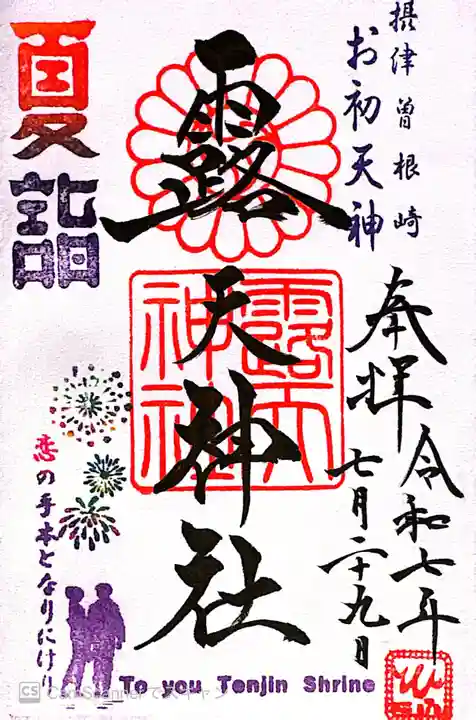 摂津曽根崎
お初天神
奉拝
令和七年
七月二十九日
露天神社
露天神社
夏詣
恋の手本となりにけり
To you Tenjin Shrine
CS CamScanner でスキャン